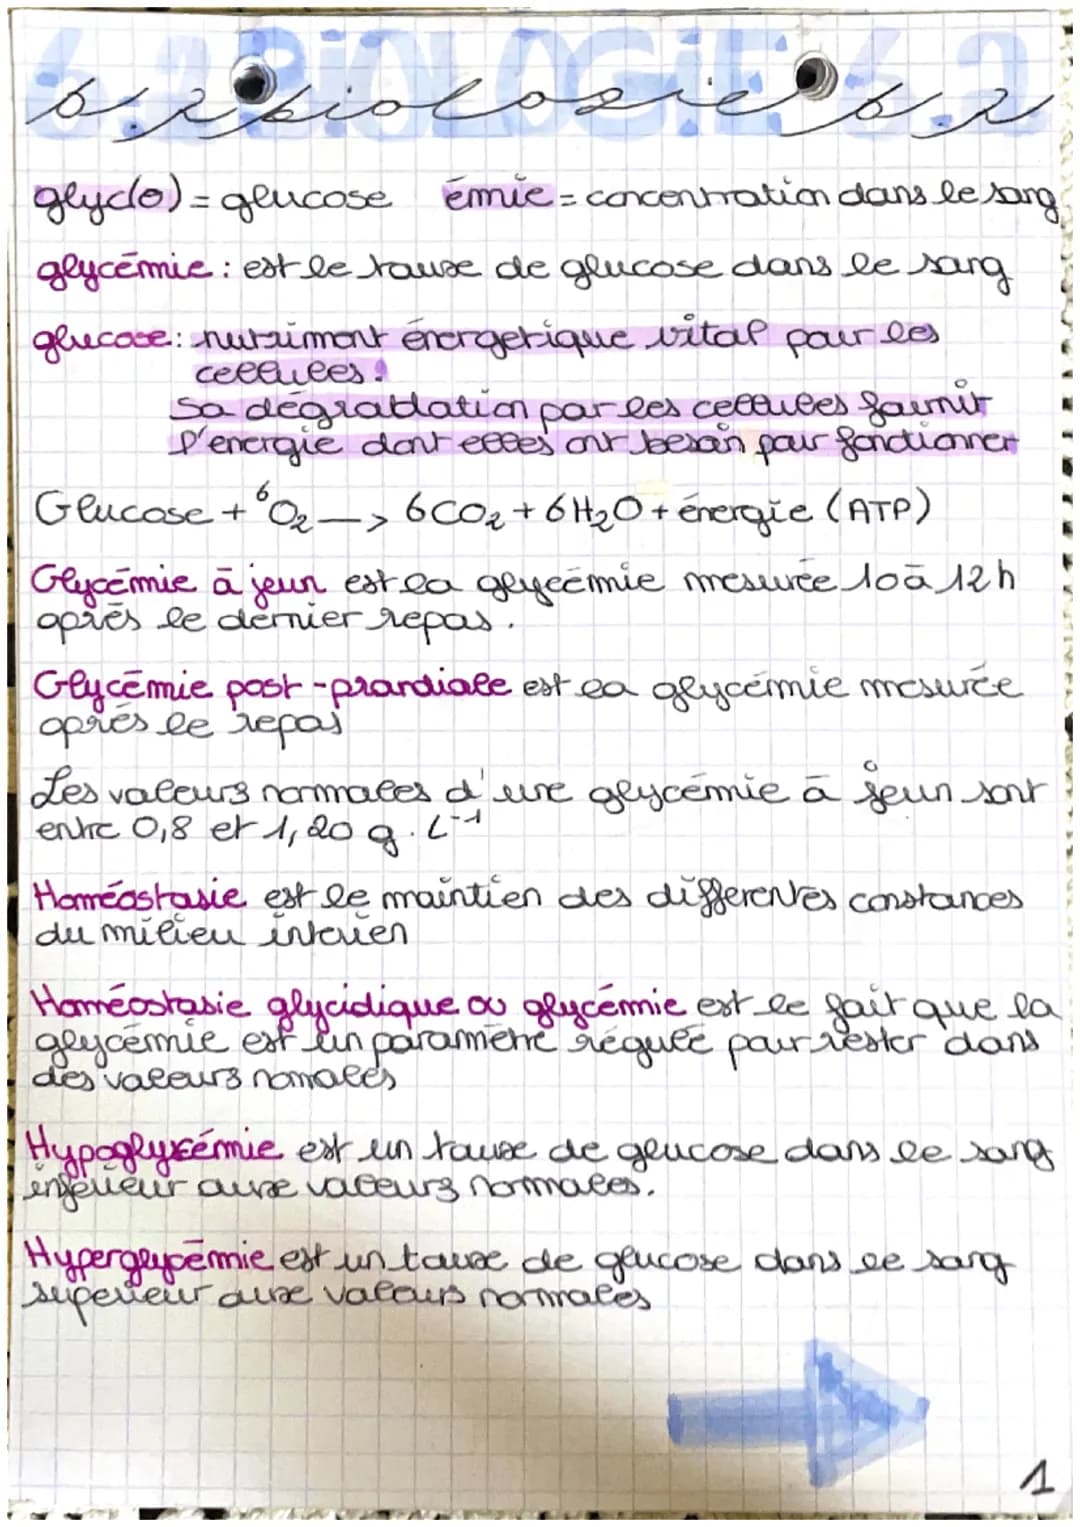 6.2 BiOLOGiE 6.2
6.2 biologie 6.2
glyc(o) = glucose émie = concentration dans le sang
glycémie : est le taux de glucose dans le sang
glucose : nutriment énergetique vital pour les
cellules !
Sa dégradation par les cellules fournit
l'energie dont elles ont besoin pour fonctionner
Glucose + 6O₂ —> 6CO₂ + 6H₂O + énergie (ATP)
Glycémie à jeun est la glycémie mesurée 10 à 12h
après le dernier repas.
Glycémie post-prandiale est la glycémie mesurée
après le repas
Les valeurs normales d'une glycémie à jeun sont
entre 0,8 et 1,20 g.L⁻¹
Homéostasie est le maintien des différentes constances
du milieu interien
Homéostasie glycidique ou glycémie est le fait que la
glycémie est un paramètre régulé pour rester dans
des valeurs nomales
Hypoglycémie est un taux de glucose dans le sang
inférieur aux valeurs normales.
Hyperglycémie est un taux de glucose dans le sang
superieur aux valeurs normales
1